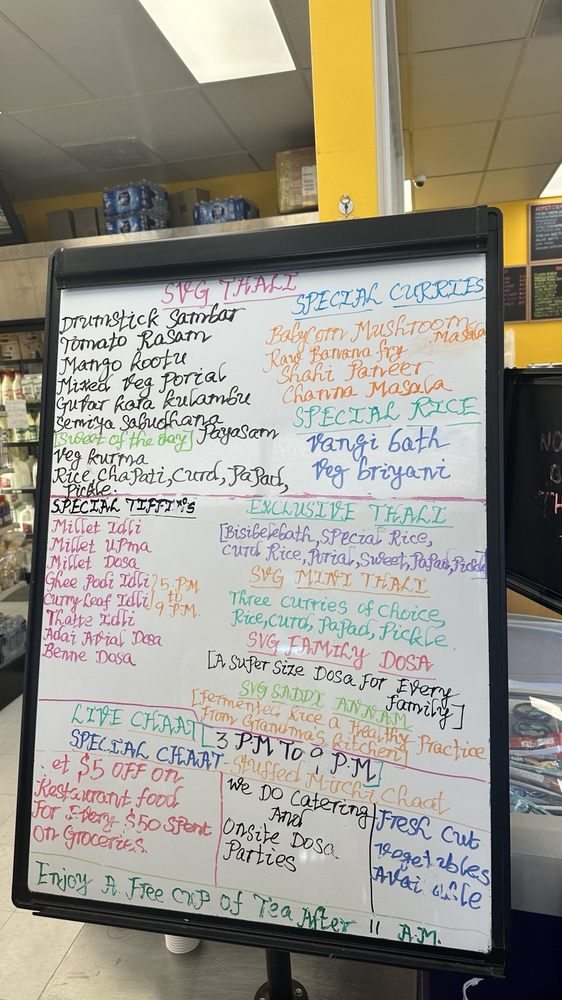 SVG THALI
Drumstick Sambar
Tomato Rasam
Mango kootu
Mixed Veg Porial
Gutar kara kulambu
Semiya Sabudhana
[Sweet of the day] Payasam
Veg kurma
Rice, Chapati, Curd, Papad,
Pickle.
SPECIAL CURRIES
Babycorn Mushroom
Masala
Raw Banana fry
Shahi Paneer
Channa Masala
SPECIAL RICE
Vangi bath
Veg briyani
SPECIAL TIFFINS
Millet Idli
Millet Upma
Millet Dosa
Ghee Podi Idli
Curry Leaf Idli
Thatte Idli
Adai Avial Dosa
Benne Dosa
5 P.M
to
9 P.M.
EXCLUSIVE THALI
[Bisibelebath, Special Rice,
Curd Rice, Porial, Sweet, Papad, Pickle]
SVG MINI THALI
Three curries of choice,
Rice, Curd, Papad, Pickle
SVG FAMILY DOSA
[A Super Size Dosa For Every
Family]
SVG SADDI ANNAM
[Fermented Rice a Healthy Practice
From Grandma's kitchen]
LIVE CHAAT [3 P.M TO 9 P.M]
SPECIAL CHAAT - Stuffed Mirchi Chaat
et $5 OFF on
Restaurant food
For Every $50 Spent
on Groceries.
We Do Catering
And
Onsite Dosa
Parties
Fresh Cut
Vegetables
Enjoy A Free Cup of Tea After 11 A.M.